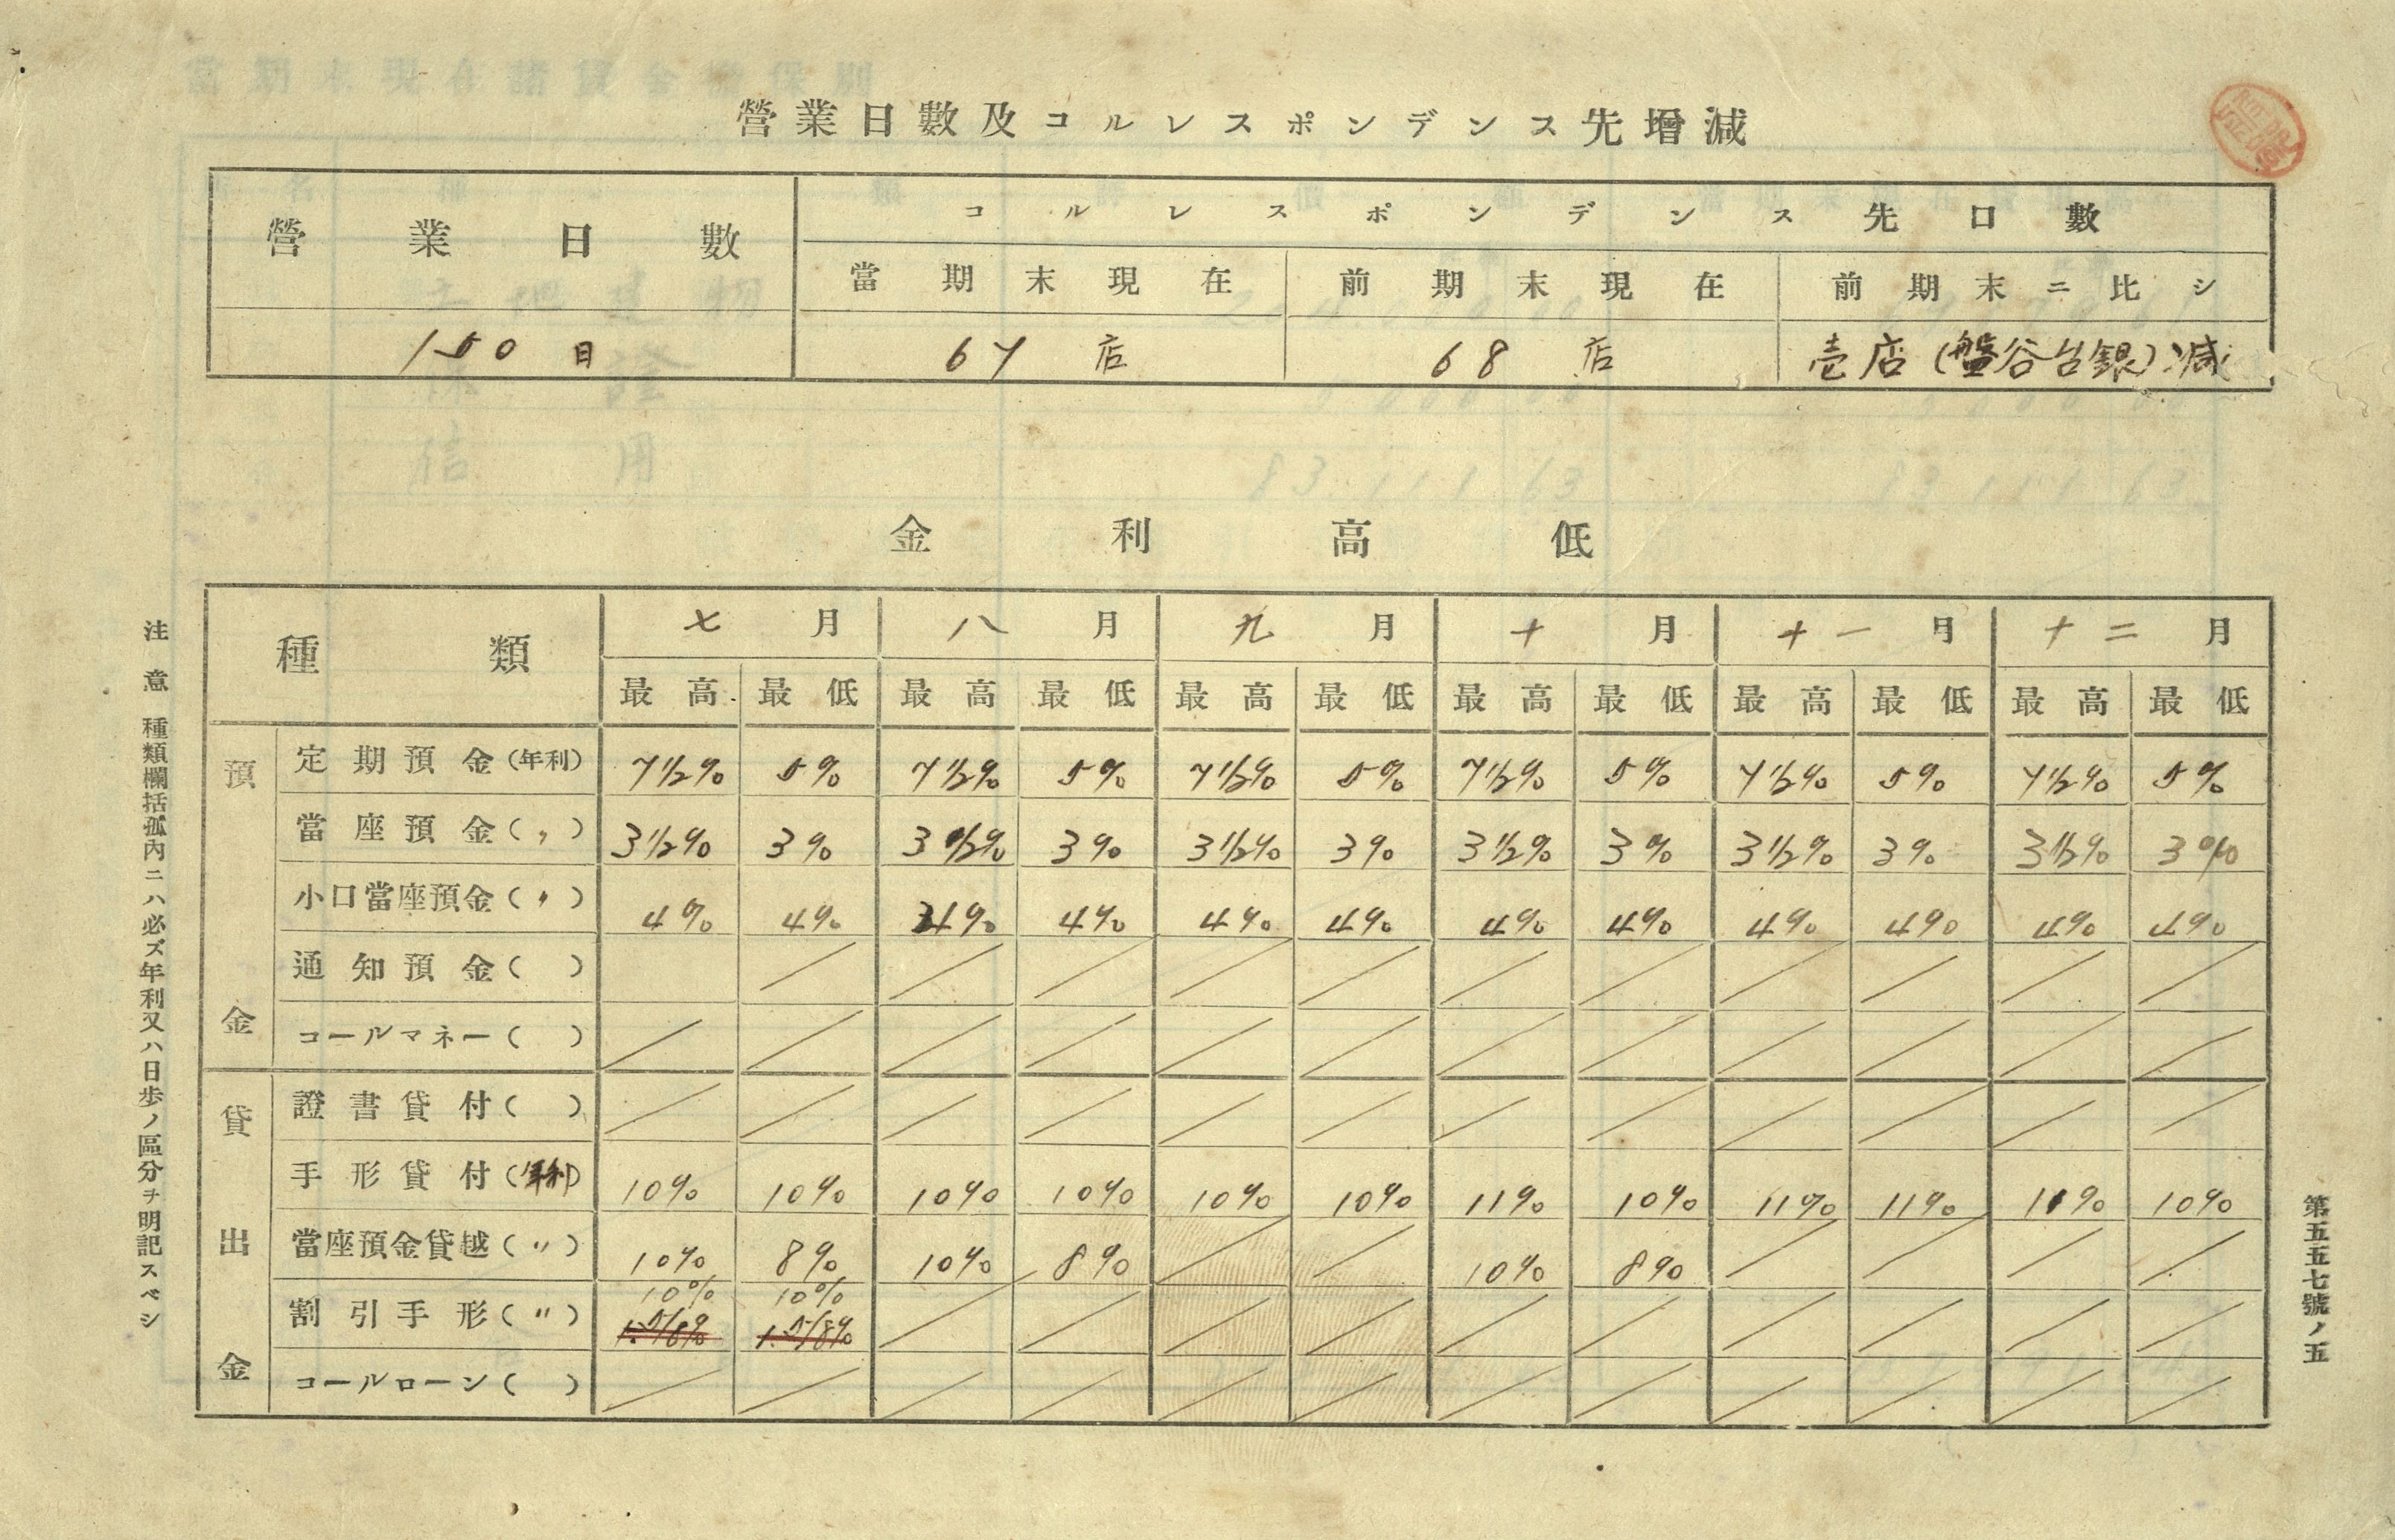 營業日數及コルレスポンデンス先增減
營業日數 コルレスポンデンス先口數
當期末現在 前期末現在 前期末ニ比シ
150日 67店 68店 壱店(盤谷台銀)減
金利高低
種類 七月 八月 九月 十月 十一月 十二月
最高 最低 最高 最低 最高 最低 最高 最低 最高 最低 最高 最低
預金
定期預金(年利) 7½% 5% 7½% 5% 7½% 5% 7½% 5% 7½% 5% 7½% 5%
當座預金(〃) 3½% 3% 3½% 3% 3½% 3% 3½% 3% 3½% 3% 3½% 3%
小口當座預金(〃) 4% 4% 4% 4% 4% 4% 4% 4% 4% 4% 4% 4%
通知預金( )
コールマネー( )
貸出金
證書貸付( )
手形貸付(年利) 10% 10% 10% 10% 10% 10% 11% 10% 11% 11% 11% 10%
當座預金貸越(〃) 10% 8% 10% 8% 10% 8%
割引手形(〃) 10% 10%
コールローン( )
注意 種類欄括孤內ニハ必ズ年利又ハ日步ノ區分ヲ明記スベシ
第五五七號ノ五